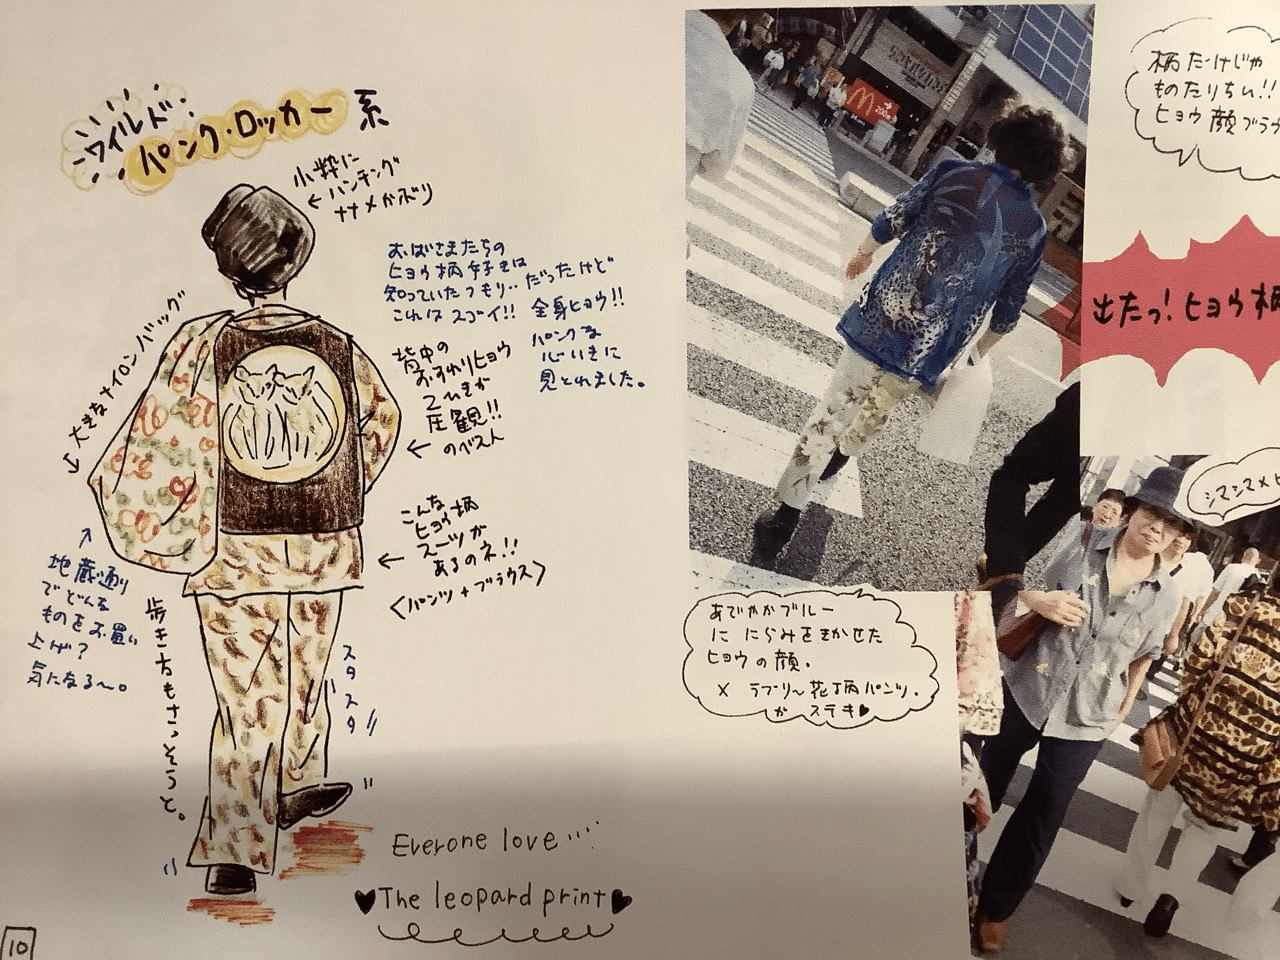 ワイルド
パンク・ロッカー系
小粋に
ハンチング
ナナメかぶり
おばさまたちの
ヒョウ柄好きは
知っていたつもり‥だったけど
これはスゴイ!! 全身ヒョウ!!
パンクな
心いきに
見とれました。
大きなナイロンバッグ
背中の
おすわりヒョウ
2ひきが
圧観!!
のベスト
こんな
ヒョウ柄
スーツが
あるのネ!!
<パンツ+ブラウス>
地蔵通り
でどんな
ものをお買い
上げ?
気になる〜。
歩き方もさっそうと。
スタスタ
Everone love…
♥The leopard print♥
10
M
200
柄だけじゃ
ものたりない!!
ヒョウ顔ブラウ
出たっ!ヒョウ柄
シマシマ×ヒ
あでやかブルー
に にらみをきかせた
ヒョウの顔。
× ラブリ〜花柄パンツ。
が ステキ♥